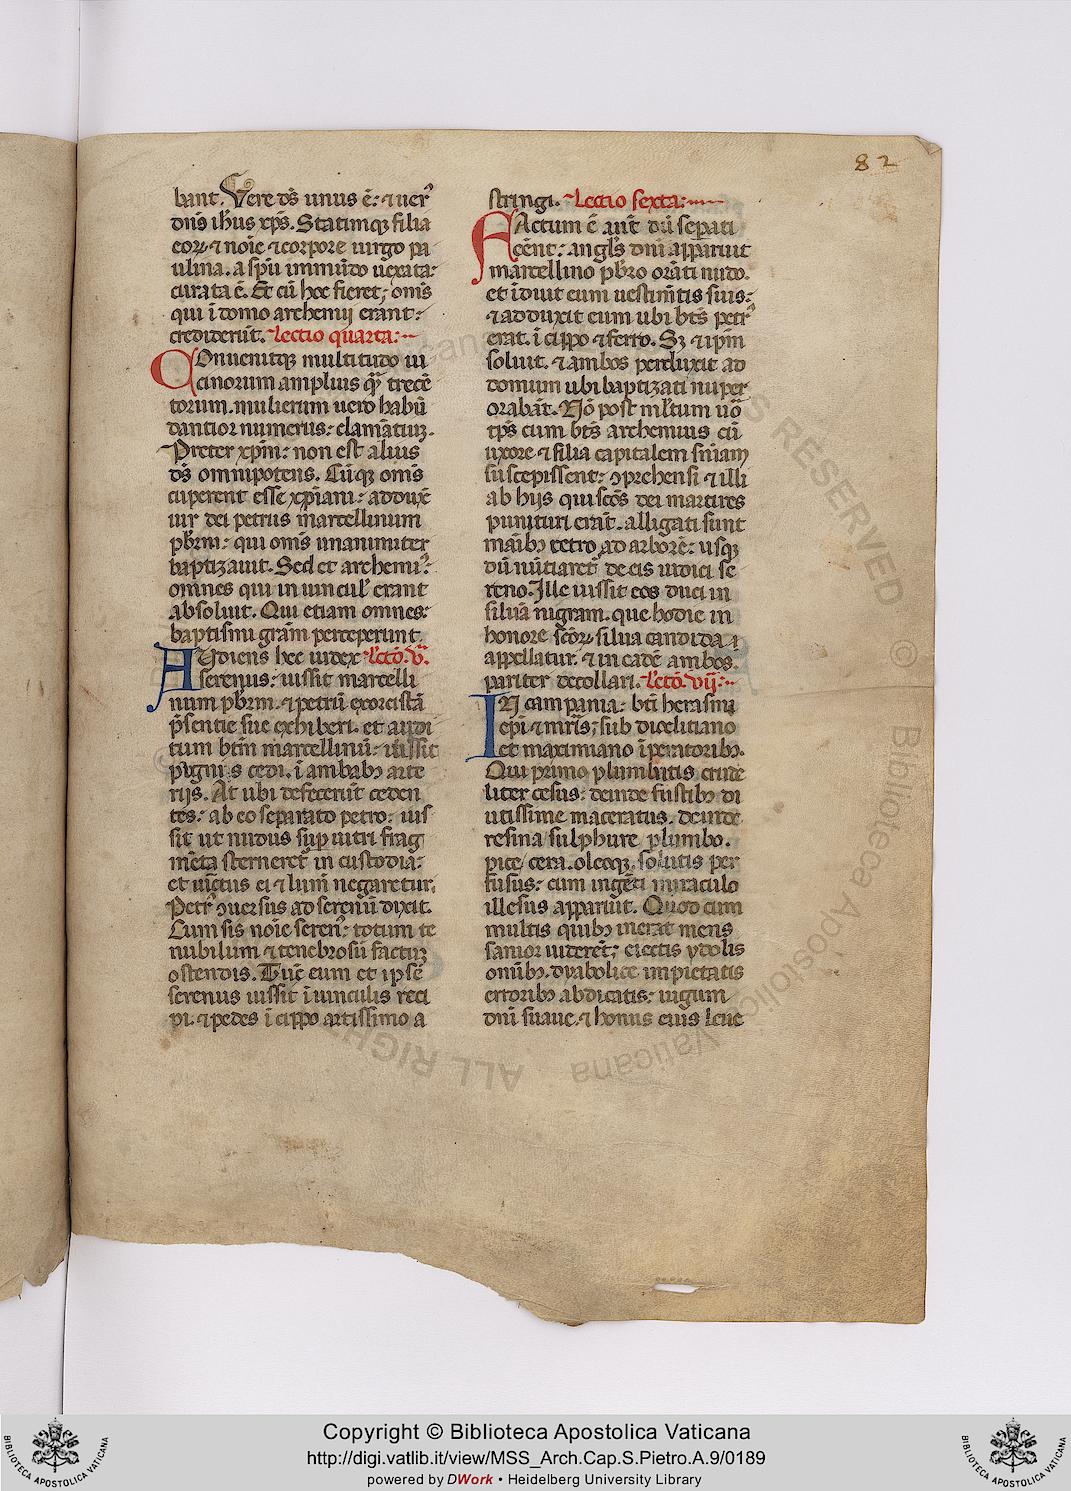 82
bant. Vere ds̄ unus ē: ⁊ uerꝰ
dn̄s ih̄us xp̄s. Statimqꝫ filia
eoꝝ ⁊ noīe ⁊ corpore uirgo pa
ulina. a sp̄u immūdo uexata:
curata ē. Et cū hec fieret; om̄s
qui ī domo archemij erant:
crediderūt. Lectio quarta:
COnuenitqꝫ multitudo ui
cinorum amplius qͣꝫ trecē
torum. mulierum uero habū
dantior numerus: clamātiuꝫ.
Preter xp̄m: non est alius
ds̄ omnipotens. Cūqꝫ om̄s
cuperent esse xp̄iani: adduxē
iūr dei petrus marcellinum
pb̄rm: qui om̄s unanimiter
baptizauit. Sed et archemiꝰ:
omnes qui in uincul' erant
absoluit. Qui etiam omnes:
baptismi gr̄am perceperunt.
AUdiens hec iudex Lectō. v̄.
serenus: iussit marcelli
num pb̄rm. ⁊ petrū exorcistā
p̄sentie sue exhiberi. et audi
tum btm̄ marcellinū: iussit
pugnis cedi. ī ambabꝫ arte
rijs. At ubi defecerūt ceden
tes: ab eo separato petro: ius
sit ut nudus sup uitri frag
mēta sterneret in custodia:
et uictus ei ⁊ lum̄ negaretur.
Petrꝰ ꝯuersus ad serenū dixit.
Cum sis noīe serenꝰ: totum te
nubilum ⁊ tenebrosū factuꝫ
ostendis. Tūc eum et ipsē
serenus iussit ī uinculis reci
pi. ⁊ pedes ī cippo artissimo a
stringi. Lectio sexta:
FActum ē aūt dū sep̄ati
eēnt: angl's dn̄i apparuit
marcellino pb̄ro orāti nudo.
et īduit eum uestim̄tis suis:
⁊ adduxit eum ubi bt̄s petrꝰ
erat. ī cippo ⁊ ferro. Sꝫ ⁊ ip̄m
soluit. ⁊ ambos perduxit ad
domum ubi baptizati nuper
orabāt. Nō post ml̄tum uō
tp̄s cum bt̄s archemius cū
uxore ⁊ filia capitalem sn̄iam
suscepissent: ꝯprehensi ⁊ illi
ab hijs qui scōs dei martires
punituri erāt. alligati sunt
manibꝫ retro ad arborē: usqꝫ
dū nūtiaret de eis iudici se
reno. Ille iussit eos duci in
siluā nigram. que hodie in
honore scōꝝ silua candida
appellatur. ⁊ in eadē ambos
pariter decollari. Lectō. vij:
IN campania: bt̄i herasmi
epī ⁊ mr̄is; sub dioclitiano
et maximiano īperatoribꝫ.
Qui primo plumbatis crude
liter cesus: deinde fustibꝫ di
utissime maceratus. deinde
resina sulphure plumbo.
pice cera. oleoqꝫ solutis per
fusus: cum ingēti miraculo
illesus apparuit. Quod cum
multis quibꝫ inerat mens
sanior uiderēt; eiectis ydolis
omībꝫ. dyabolice impietatis
erroribꝫ abdicatis: iugum
dn̄i suaue. ⁊ honus eius leue
© Biblioteca Apostolica Vaticana
ALL RIGHTS RESERVED
Copyright © Biblioteca Apostolica Vaticana
http://digi.vatlib.it/view/MSS_Arch.Cap.S.Pietro.A.9/0189
powered by DWork • Heidelberg University Library
BIBLIOTECA APOSTOLICA VATICANA
BIBLIOTECA APOSTOLICA VATICANA